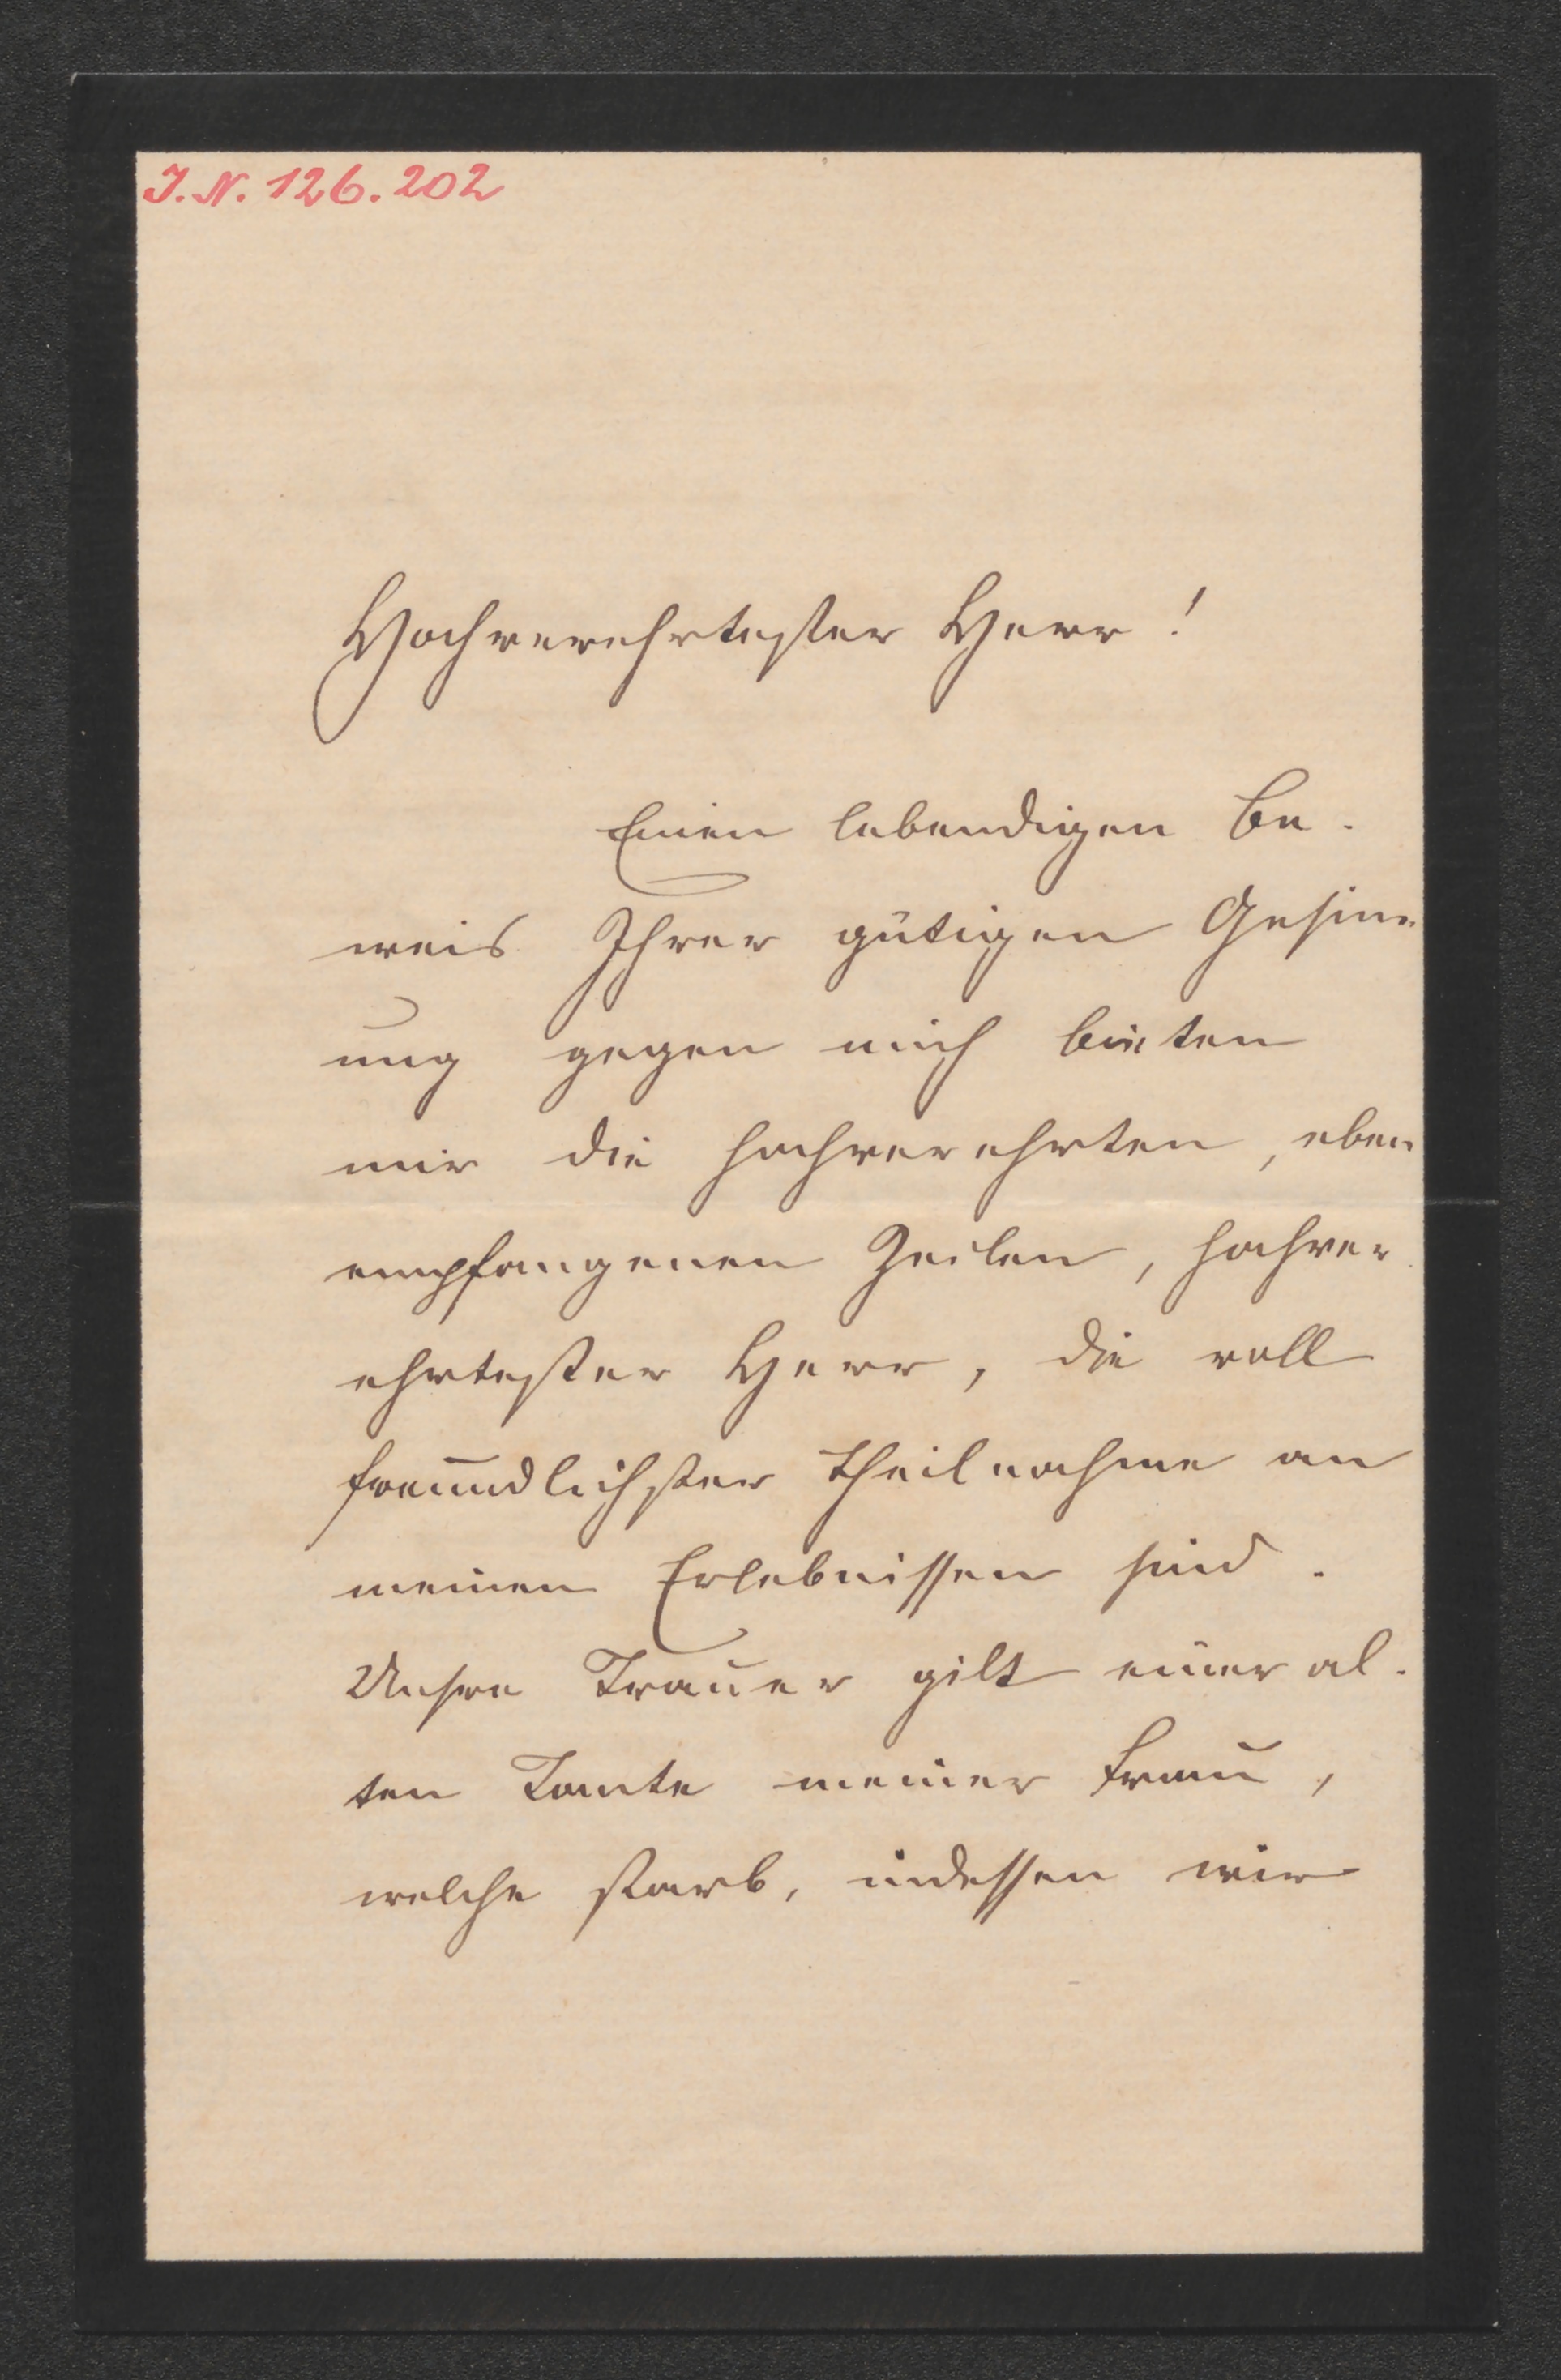 I. N. 126.202
Hochverehrtester Herr!
Einen lebendigen Be-
weis Ihrer gütigen Gesinn-
ung gegen mich bieten
mir die hochverehrten, eben
empfangenen Zeilen, hochver-
ehrtester Herr, die voll
freundlichster Theilnahme an
meinen Erlebnissen sind.
Unsre Trauer gilt einer al-
ten Tante meiner Frau,
welche starb, indessen wir